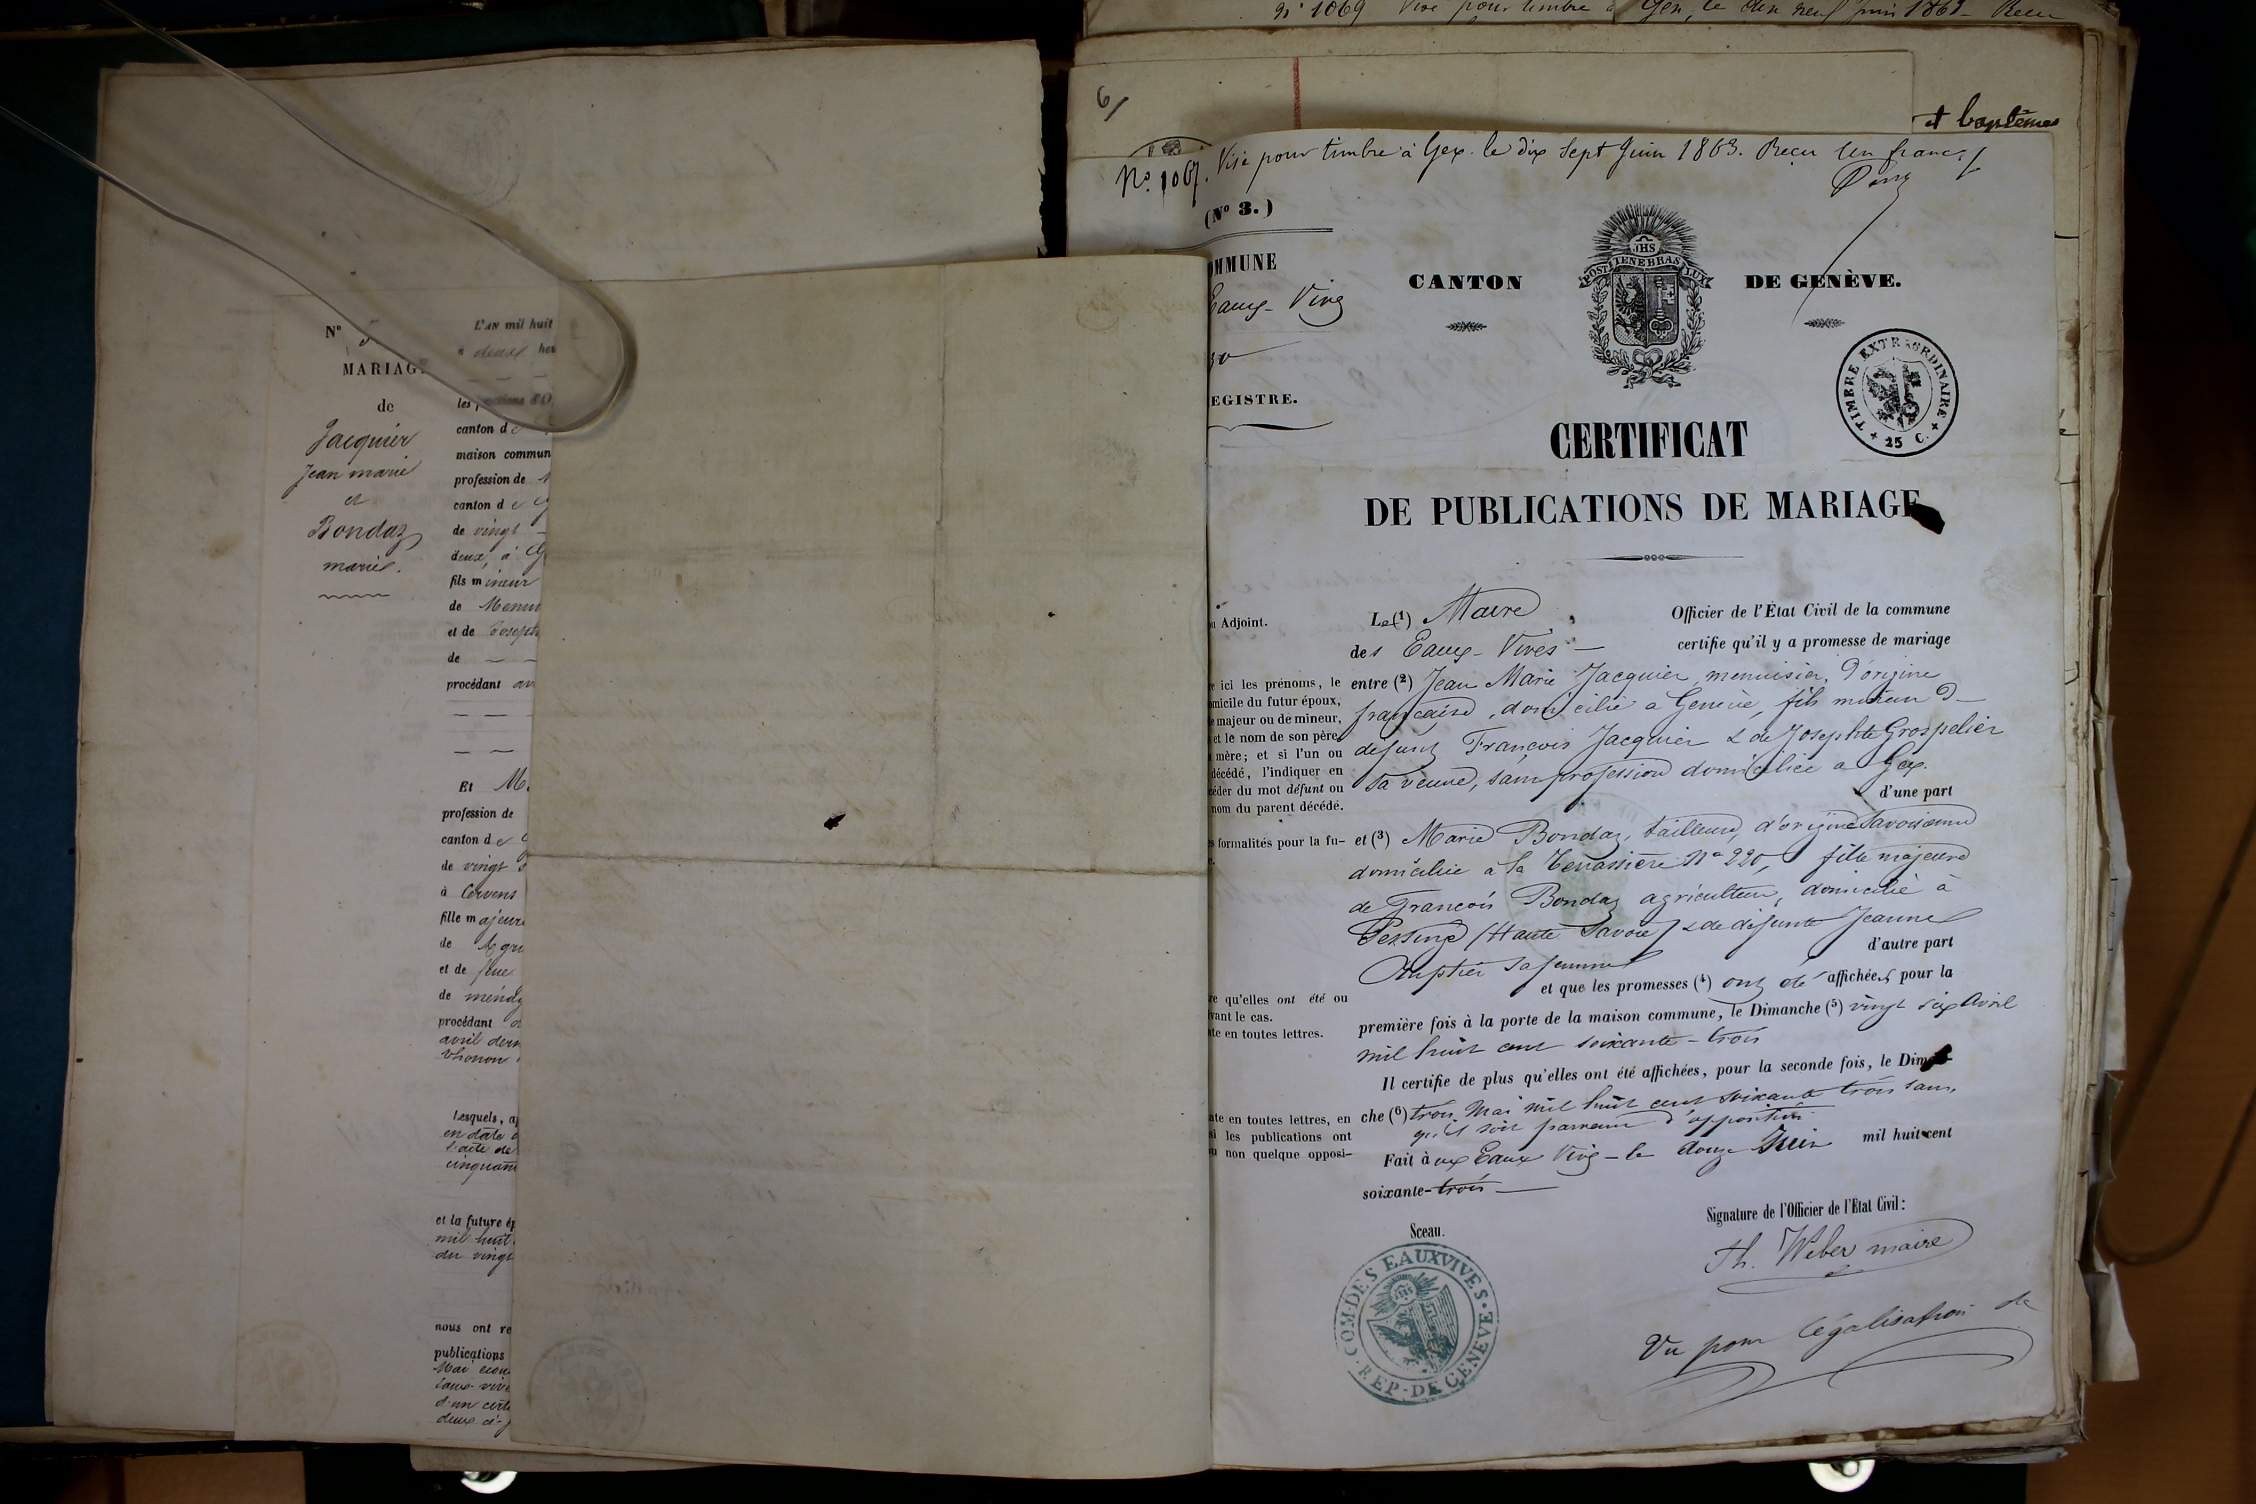 n° 1069 Visé pour timbre à Gex, le dix neuf juin 1863 - Recu
6/
et baptèmes
N° 1067. Visé pour timbre à Gex. le dix sept Juin 1863. Reçu Un franc
(N° 3.)
OMMUNE
Eaux-Vives
30
EGISTRE.
CANTON DE GENÈVE.
JHS
POST TENEBRAS LUX
TIMBRE EXTRAORDINAIRE
25 C.
CERTIFICAT
DE PUBLICATIONS DE MARIAGE
u Adjoint.
Le (1) Maire Officier de l'État Civil de la commune
des Eaux-Vives certifie qu'il y a promesse de mariage
entre (2) Jean Marie Jacquier, menuisier, d'origine
française, domicilié à Genève, fils mineur d
défunt François Jacquier & de Josephte Grospelier
sa veuve, sans profession domiciliée à Gex.
d'une part
et (3) Marie Bondaz, tailleuse, d'origine Savoisienne
domiciliée à la Terrassière N° 220, fille majeure
de François Bondaz agriculteur, domicilié à
(Haute Savoie) & de défunte Jeanne
d'autre part
sa femme
et que les promesses (4) ont été affichées pour la
première fois à la porte de la maison commune, le Dimanche (5) vingt six Avril
mil huit cent soixante-trois
Il certifie de plus qu'elles ont été affichées, pour la seconde fois, le Diman-
che (6) trois Mai mil huit cent soixante trois sans
qu'il soit parvenu d'opposition.
Fait à ux Eaux Vives - le douze Juin mil huit cent
soixante-trois
re ici les prénoms, le
omicile du futur époux,
e majeur ou de mineur,
et le nom de son père
mère; et si l'un ou
décédé, l'indiquer en
céder du mot défunt ou
nom du parent décédé.
s formalités pour la fu-
re qu'elles ont été ou
vant le cas.
te en toutes lettres.
ate en toutes lettres, en
si les publications ont
u non quelque opposi-
Sceau.
COM. DES EAUXVIVES. REP. DE GENEVE
Signature de l'Officier de l'Etat Civil:
Th. Weber maire
Vu pour légalisation de
N° 5
MARIAG
de
Jacquier
Jean marie
et
Bondaz
marie.
L'AN mil huit
à deux heu
canton de
maison commun
profession de
canton de
de vingt
deux, à G
fils mineur
de Menui
et de Joseph
de
procédant
Et M
profession de
canton de
de vingt
à Cervens
fille majeure
de Agri
et de feue
de
procédant
avril dern
Lesquels, a
en date
l'acte de
cinquant
et la future ép
mil huit
du vingt
nous ont re
publications
Mai
Eaux-vive
d'un certi
deux